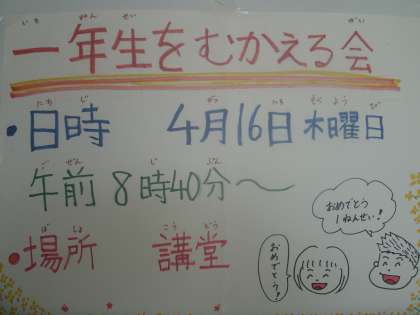 いち ねん せい かい
一年生をむかえる会
にち じ がつ にち もく よう び
・日時 4月16日 木曜日
ご ぜん じ ぷん
午前 8時40分～
ば しょ こう どう
・場所 講堂
おめでとう
1ねんせい！
おめでとう！